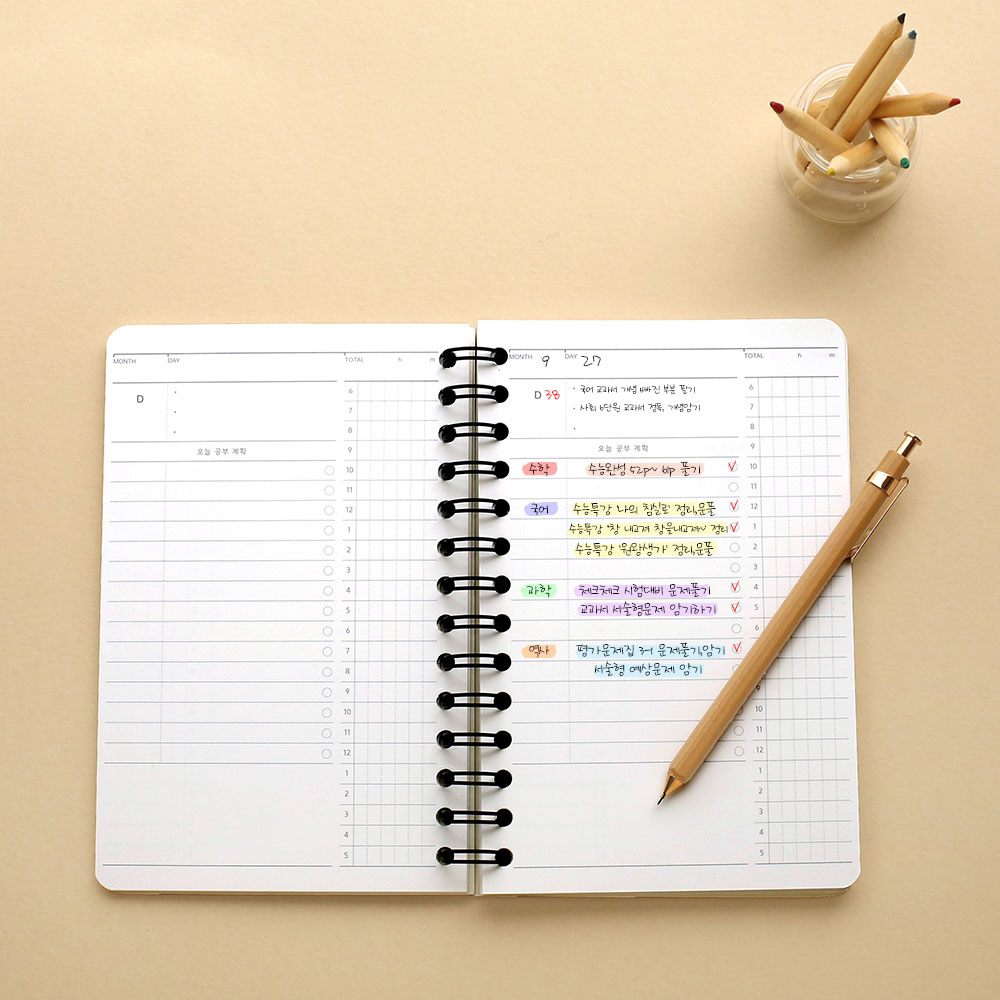 MONTH DAY TOTAL h m
D
오늘 공부 계획
6
7
8
9
10
11
12
1
2
3
4
5
6
7
8
9
10
11
12
1
2
3
4
5
MONTH 9 DAY 27 TOTAL h m
D 38
· 국어 교과서 개념 빠진 부분 필기
· 사회 6단원 교과서 정독, 개념암기
오늘 공부 계획
수학 수능완성 52p~ 61p 풀기
국어 수능특강 '나의 침실로' 정리,문풀
수능특강 '창 내고쟈 창을내고쟈~' 정리
수능특강 '원왕생가' 정리,문풀
과학 체크체크 시험대비 문제풀기
교과서 서술형문제 암기하기
역사 평가문제집 3-1 문제풀기,암기
서술형 예상문제 암기
6
7
8
9
10
11
12
1
2
3
4
5
6
7
9
10
12
1
2
3
4
5